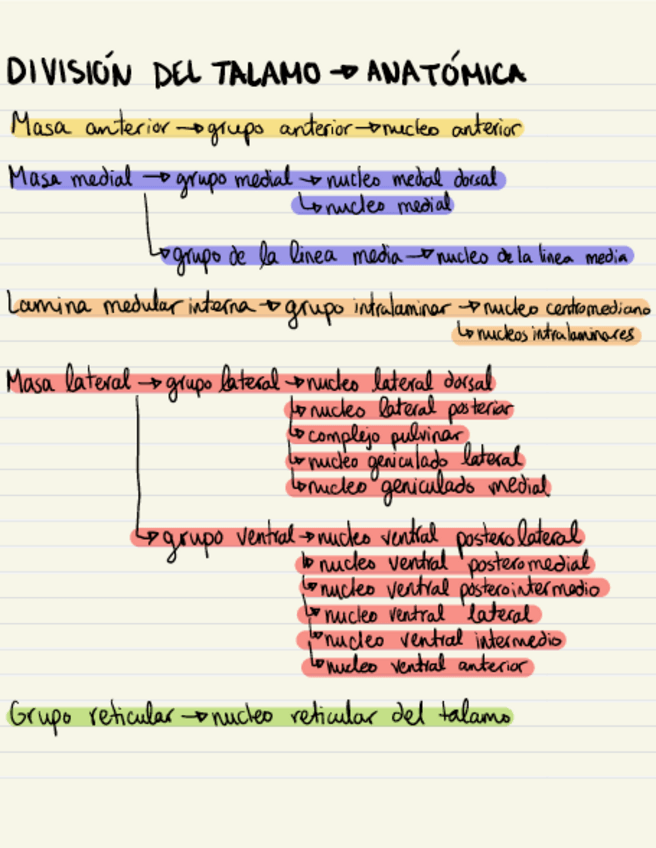 DIVISIÓN DEL TALAMO → ANATÓMICA
Masa anterior → grupo anterior → nucleo anterior
Masa medial → grupo medial → nucleo medial dorsal
↳ nucleo medial
↳ grupo de la linea media → nucleo de la linea media
Lamina medular interna → grupo intralaminar → nucleo centromediano
↳ nucleos intralaminares
Masa lateral → grupo lateral → nucleo lateral dorsal
↳ nucleo lateral posterior
↳ complejo pulvinar
↳ nucleo geniculado lateral
↳ nucleo geniculado medial
↳ grupo ventral → nucleo ventral posterolateral
↳ nucleo ventral posteromedial
↳ nucleo ventral posterointermedio
↳ nucleo ventral lateral
↳ nucleo ventral intermedio
↳ nucleo ventral anterior
Grupo reticular → nucleo reticular del talamo